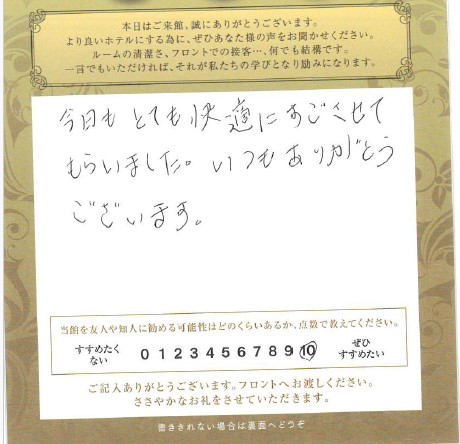 本日はご来館、誠にありがとうございます。
より良いホテルにする為に、ぜひあなた様の声をお聞かせください。
ルームの清潔さ、フロントでの接客…、何でも結構です。
一言でもいただければ、それが私たちの学びとなり励みになります。
今日もとても快適にすごさせて
もらいました。いつもありがとう
ございます。
当館を友人や知人に勧める可能性はどのくらいあるか、点数で教えてください。
すすめたくない 0 1 2 3 4 5 6 7 8 9 10 ぜひすすめたい
ご記入ありがとうございます。フロントへお渡しください。
ささやかなお礼をさせていただきます。
書ききれない場合は裏面へどうぞ